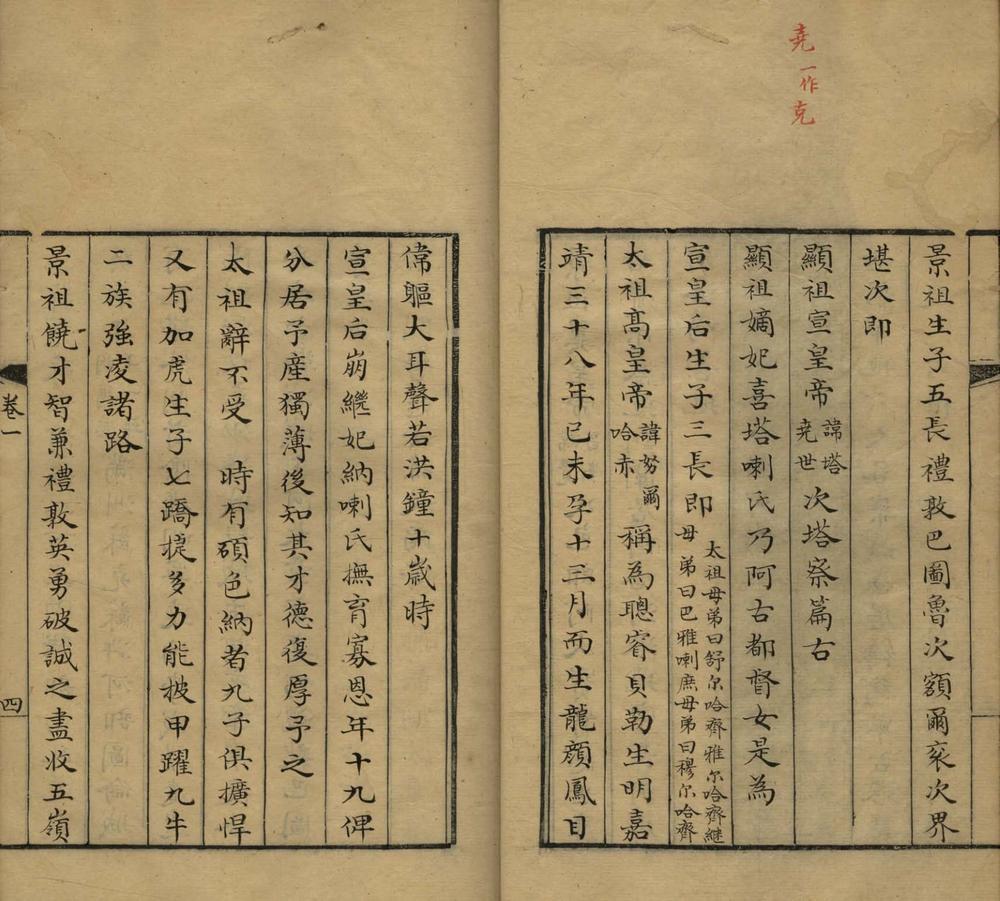 堯一作克
景祖生子五長禮敦巴圖魯次額爾衮次界
堪次即
顯祖宣皇帝諱塔堯世次塔察篇右
顯祖嫡妃喜塔喇氏乃阿古都督女是為
宣皇后生子三長即太祖母弟曰舒尔哈齊雅尔哈齊継母弟曰巴雅喇庶母弟曰穆尔哈齊
太祖髙皇帝諱努爾哈赤稱為聰睿貝勒生明嘉
靖三十八年己未孕十三月而生龍顔鳳目
偉軀大耳聲若洪鐘十歲時
宣皇后崩繼妃納喇氏撫育寡恩年十九俾
分居予産獨薄後知其才德復厚予之
太祖辭不受 時有碩色納者九子俱擴悍
又有加虎生子七蹻㨗多力能披甲躍九牛
二族強凌諸路
景祖饒才智兼禮敦英勇破誠之盡收五嶺
卷一
四